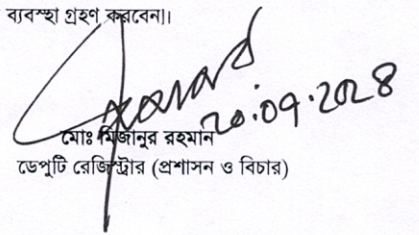 ব্যবস্থা গ্রহণ করবেন।।
২০.০৭.২০২৪
মোঃ মিজানুর রহমান
ডেপুটি রেজিস্ট্রার (প্রশাসন ও বিচার)